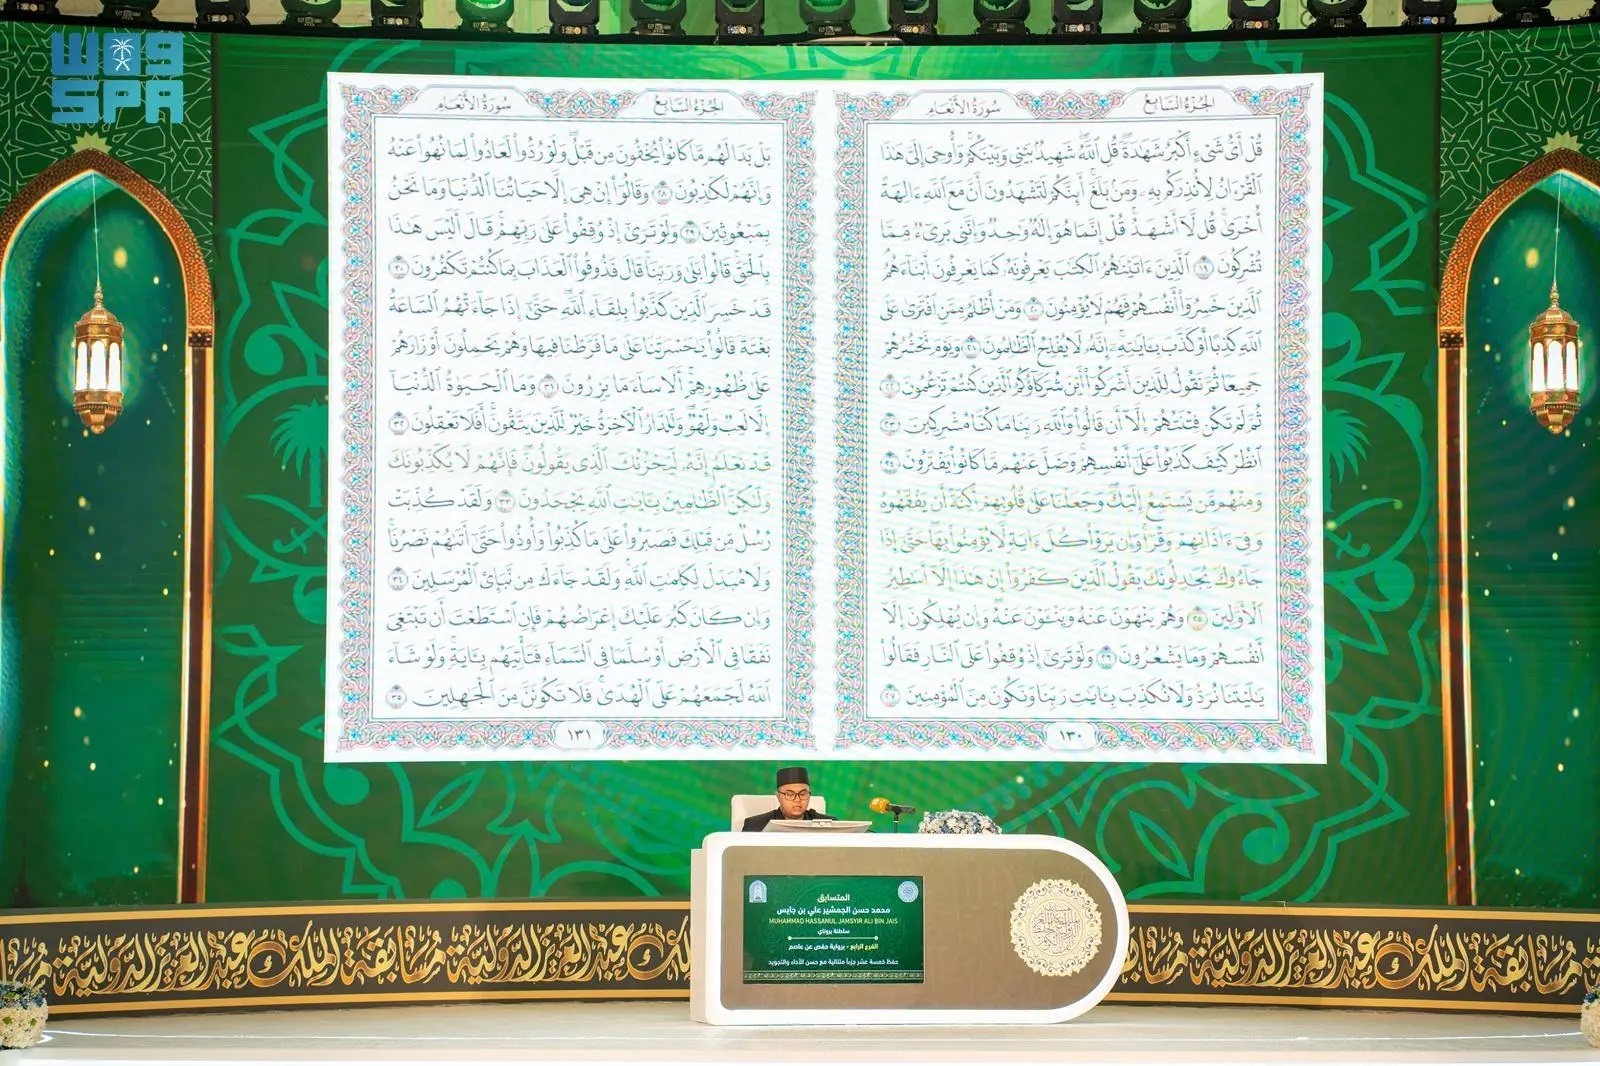 واس
SPA
الجُزْءُ السَّابِعُ
سُورَةُ الأَنْعَامِ
قُلْ أَىُّ شَىْءٍ أَكْبَرُ شَهَٰدَةً ۖ قُلِ ٱللَّهُ ۖ شَهِيدٌۢ بَيْنِى وَبَيْنَكُمْ ۚ وَأُوحِىَ إِلَىَّ هَٰذَا
ٱلْقُرْءَانُ لِأُنذِرَكُم بِهِۦ وَمَنۢ بَلَغَ ۚ أَئِنَّكُمْ لَتَشْهَدُونَ أَنَّ مَعَ ٱللَّهِ ءَالِهَةً
أُخْرَىٰ ۚ قُل لَّآ أَشْهَدُ ۚ قُلْ إِنَّمَا هُوَ إِلَٰهٌ وَٰحِدٌ وَإِنَّنِى بَرِىٓءٌ مِّمَّا
تُشْرِكُونَ ١٩ ٱلَّذِينَ ءَاتَيْنَٰهُمُ ٱلْكِتَٰبَ يَعْرِفُونَهُۥ كَمَا يَعْرِفُونَ أَبْنَآءَهُمُ
ٱلَّذِينَ خَسِرُوٓا۟ أَنفُسَهُمْ فَهُمْ لَا يُؤْمِنُونَ ٢٠ وَمَنْ أَظْلَمُ مِمَّنِ ٱفْتَرَىٰ عَلَى
ٱللَّهِ كَذِبًا أَوْ كَذَّبَ بِـَٔايَٰتِهِۦٓ ۗ إِنَّهُۥ لَا يُفْلِحُ ٱلظَّٰلِمُونَ ٢١ وَيَوْمَ نَحْشُرُهُمْ
جَمِيعًا ثُمَّ نَقُولُ لِلَّذِينَ أَشْرَكُوٓا۟ أَيْنَ شُرَكَآؤُكُمُ ٱلَّذِينَ كُنتُمْ تَزْعُمُونَ ٢٢
ثُمَّ لَمْ تَكُن فِتْنَتُهُمْ إِلَّآ أَن قَالُوا۟ وَٱللَّهِ رَبِّنَا مَا كُنَّا مُشْرِكِينَ ٢٣
ٱنظُرْ كَيْفَ كَذَبُوا۟ عَلَىٰٓ أَنفُسِهِمْ ۚ وَضَلَّ عَنْهُم مَّا كَانُوا۟ يَفْتَرُونَ ٢٤
وَمِنْهُم مَّن يَسْتَمِعُ إِلَيْكَ ۖ وَجَعَلْنَا عَلَىٰ قُلُوبِهِمْ أَكِنَّةً أَن يَفْقَهُوهُ
وَفِىٓ ءَاذَانِهِمْ وَقْرًا ۚ وَإِن يَرَوْا۟ كُلَّ ءَايَةٍ لَّا يُؤْمِنُوا۟ بِهَا ۚ حَتَّىٰٓ إِذَا
جَآءُوكَ يُجَٰدِلُونَكَ يَقُولُ ٱلَّذِينَ كَفَرُوٓا۟ إِنْ هَٰذَآ إِلَّآ أَسَٰطِيرُ
ٱلْأَوَّلِينَ ٢٥ وَهُمْ يَنْهَوْنَ عَنْهُ وَيَنْـَٔوْنَ عَنْهُ ۖ وَإِن يُهْلِكُونَ إِلَّآ
أَنفُسَهُمْ وَمَا يَشْعُرُونَ ٢٦ وَلَوْ تَرَىٰٓ إِذْ وُقِفُوا۟ عَلَى ٱلنَّارِ فَقَالُوا۟
يَٰلَيْتَنَا نُرَدُّ وَلَا نُكَذِّبَ بِـَٔايَٰتِ رَبِّنَا وَنَكُونَ مِنَ ٱلْمُؤْمِنِينَ ٢٧
١٣٠
الجُزْءُ السَّابِعُ
سُورَةُ الأَنْعَامِ
بَلْ بَدَا لَهُم مَّا كَانُوا۟ يُخْفُونَ مِن قَبْلُ ۖ وَلَوْ رُدُّوا۟ لَعَادُوا۟ لِمَا نُهُوا۟ عَنْهُ
وَإِنَّهُمْ لَكَٰذِبُونَ ٢٨ وَقَالُوٓا۟ إِنْ هِىَ إِلَّا حَيَاتُنَا ٱلدُّنْيَا وَمَا نَحْنُ
بِمَبْعُوثِينَ ٢٩ وَلَوْ تَرَىٰٓ إِذْ وُقِفُوا۟ عَلَىٰ رَبِّهِمْ ۚ قَالَ أَلَيْسَ هَٰذَا
بِٱلْحَقِّ ۚ قَالُوا۟ بَلَىٰ وَرَبِّنَا ۚ قَالَ فَذُوقُوا۟ ٱلْعَذَابَ بِمَا كُنتُمْ تَكْفُرُونَ ٣٠
قَدْ خَسِرَ ٱلَّذِينَ كَذَّبُوا۟ بِلِقَآءِ ٱللَّهِ ۖ حَتَّىٰٓ إِذَا جَآءَتْهُمُ ٱلسَّاعَةُ
بَغْتَةً قَالُوا۟ يَٰحَسْرَتَنَا عَلَىٰ مَا فَرَّطْنَا فِيهَا وَهُمْ يَحْمِلُونَ أَوْزَارَهُمْ
عَلَىٰ ظُهُورِهِمْ ۚ أَلَا سَآءَ مَا يَزِرُونَ ٣١ وَمَا ٱلْحَيَوٰةُ ٱلدُّنْيَآ
إِلَّا لَعِبٌ وَلَهْوٌ ۖ وَلَلدَّارُ ٱلْءَاخِرَةُ خَيْرٌ لِّلَّذِينَ يَتَّقُونَ ۗ أَفَلَا تَعْقِلُونَ ٣٢
قَدْ نَعْلَمُ إِنَّهُۥ لَيَحْزُنُكَ ٱلَّذِى يَقُولُونَ ۖ فَإِنَّهُمْ لَا يُكَذِّبُونَكَ
وَلَٰكِنَّ ٱلظَّٰلِمِينَ بِـَٔايَٰتِ ٱللَّهِ يَجْحَدُونَ ٣٣ وَلَقَدْ كُذِّبَتْ
رُسُلٌ مِّن قَبْلِكَ فَصَبَرُوا۟ عَلَىٰ مَا كُذِّبُوا۟ وَأُوذُوا۟ حَتَّىٰٓ أَتَىٰهُمْ نَصْرُنَا ۚ
وَلَا مُبَدِّلَ لِكَلِمَٰتِ ٱللَّهِ ۚ وَلَقَدْ جَآءَكَ مِن نَّبَإِى۟ ٱلْمُرْسَلِينَ ٣٤
وَإِن كَانَ كَبُرَ عَلَيْكَ إِعْرَاضُهُمْ فَإِنِ ٱسْتَطَعْتَ أَن تَبْتَغِىَ
نَفَقًا فِى ٱلْأَرْضِ أَوْ سُلَّمًا فِى ٱلسَّمَآءِ فَتَأْتِيَهُم بِـَٔايَةٍ ۚ وَلَوْ شَآءَ
ٱللَّهُ لَجَمَعَهُمْ عَلَى ٱلْهُدَىٰ ۚ فَلَا تَكُونَنَّ مِنَ ٱلْجَٰهِلِينَ ٣٥
١٣١
المتسابق
محمد حسن الجمشير علي بن جايس
MUHAMMAD HASSANUL JAMSYIR ALI BIN JAIS
سلطنة بروناي
الفرع الرابع - برواية حفص عن عاصم
حفظ خمسة عشر جزءاً متتالية مع حسن الأداء والتجويد
مسابقة الملك عبدالعزيز الدولية مسابقة الملك عبدالعزيز الدولية
مسابقة الملك عبدالعزيز الدولية